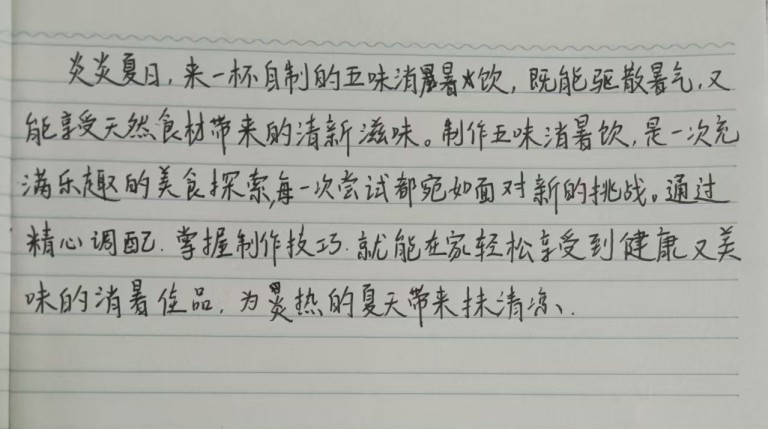 炎炎夏日，来一杯自制的五味消暑饮，既能驱散暑气，又
能享受天然食材带来的清新滋味。制作五味消暑饮，是一次充
满乐趣的美食探索，每一次尝试都宛如面对新的挑战。通过
精心调配．掌握制作技巧．就能在家轻松享受到健康又美
味的消暑佳品，为炎热的夏天带来抹清凉、．